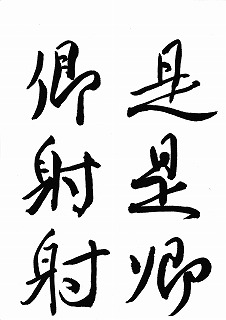 是是卿
卿射射